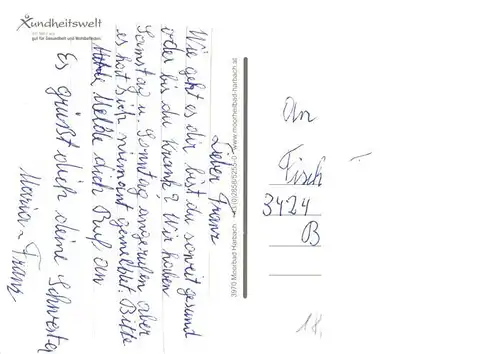 Xundheitswelt
gut für Gesundheit und Wohlbefinden.
Lieber Franz
Wie geht es dir bist du soweit gesund
oder bis du krank? Wir haben
Samstag u. Sonntag angerufen aber
es hat sich niemand gemeldet. Bitte
Melde dich Ruf an
Es grüßt dich deine Schwester
Maria - Franz
3970 Moorbad Harbach
www.moorheilbad-harbach.at
an
Fisch
3424
B
18,